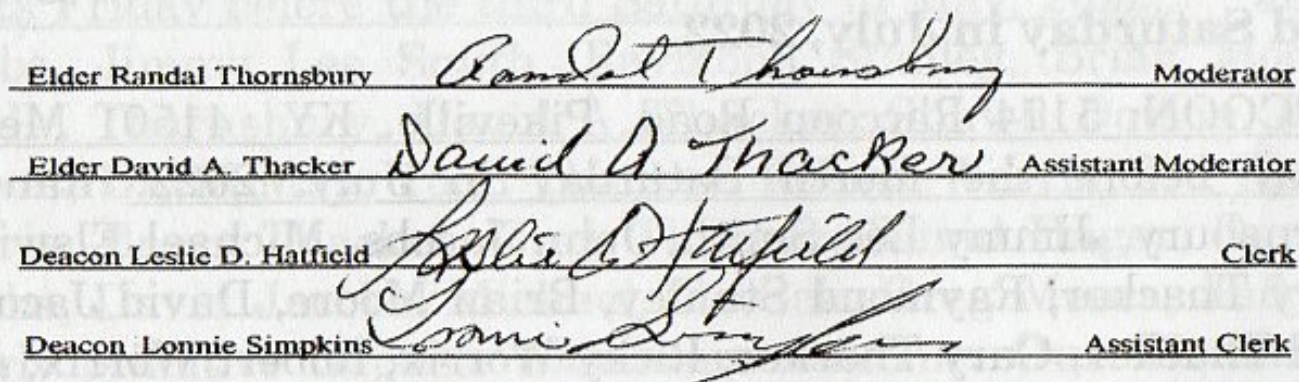 Elder Randal Thornsbury Randal Thornsbury Moderator
Elder David A. Thacker David A. Thacker Assistant Moderator
Deacon Leslie D. Hatfield Leslie D Hatfield Clerk
Deacon Lonnie Simpkins Lonnie Simpkins Assistant Clerk